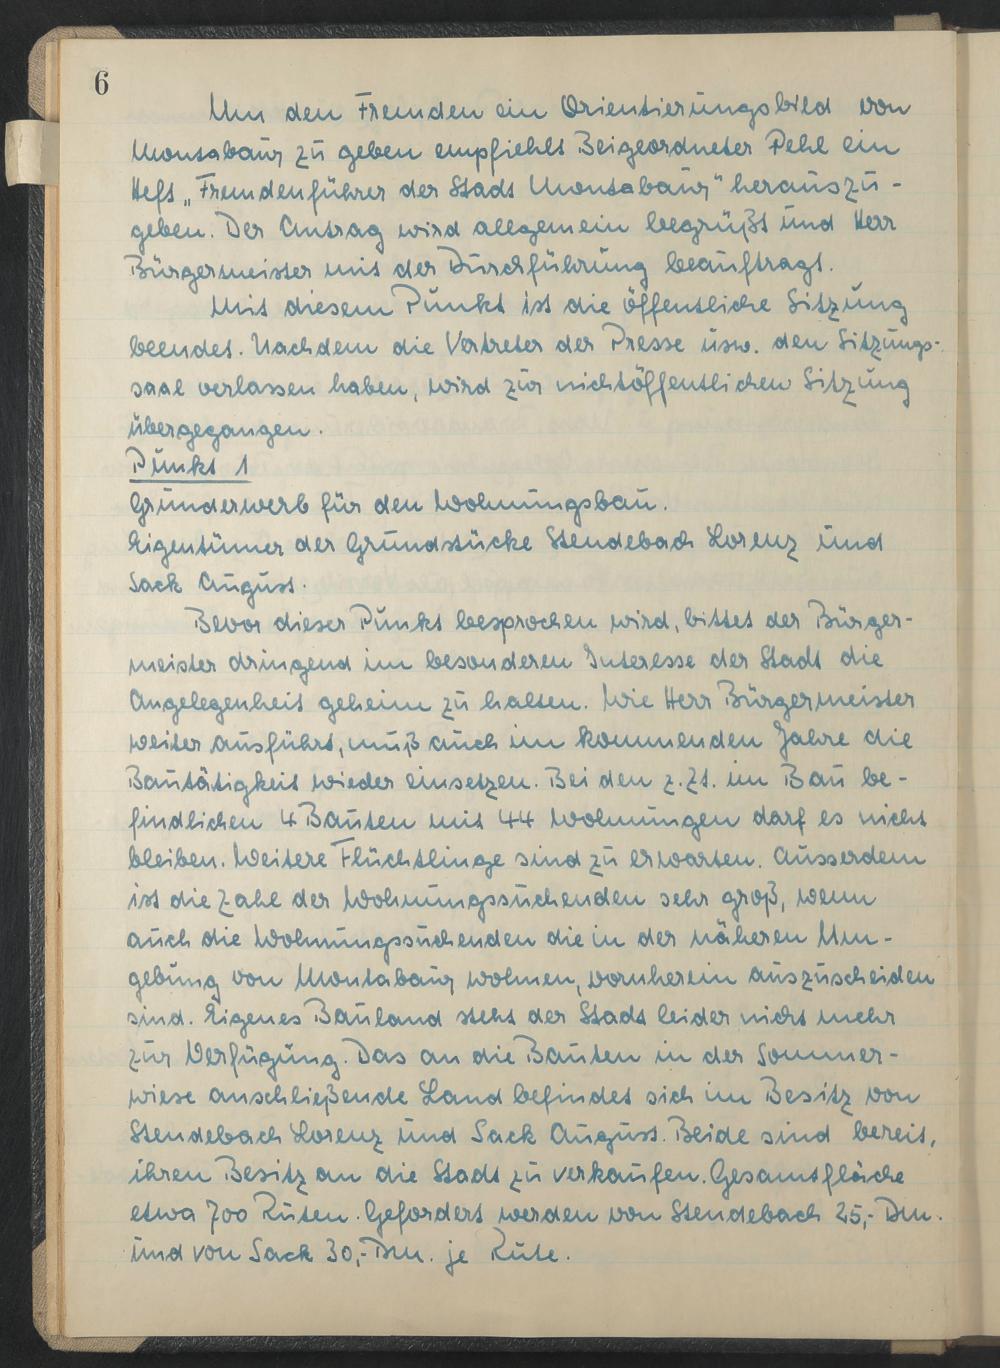 6
Um den Fremden ein Orientierungsbild von
Montabaur zu geben empfiehlt Beigeordneter Pehl ein
Heft „Fremdenführer der Stadt Montabaur" herauszu-
geben. Der Antrag wird allgemein begrüßt und Herr
Bürgermeister mit der Durchführung beauftragt.
Mit diesem Punkt ist die öffentliche Sitzung
beendet. Nachdem die Vertreter der Presse usw. den Sitzungs-
saal verlassen haben, wird zur nichtöffentlichen Sitzung
übergegangen.
Punkt 1
Grunderwerb für den Wohnungsbau.
Eigentümer der Grundstücke Stendebach Lorenz und
Sack August.
Bevor dieser Punkt besprochen wird, bittet der Bürger-
meister dringend im besonderen Interesse der Stadt die
Angelegenheit geheim zu halten. Wie Herr Bürgermeister
weiter ausführt, muß auch im kommenden Jahre die
Bautätigkeit wieder einsetzen. Bei den z.Zt. im Bau be-
findlichen 4 Bauten mit 44 Wohnungen darf es nicht
bleiben. Weitere Flüchtlinge sind zu erwarten. Ausserdem
ist die Zahl der Wohnungssuchenden sehr groß, wenn
auch die Wohnungssuchenden die in der näheren Um-
gebung von Montabaur wohnen, vornherein auszuscheiden
sind. Eigenes Bauland steht der Stadt leider nicht mehr
zur Verfügung. Das an die Bauten in der Sommer-
wiese anschließende Land befindet sich im Besitz von
Stendebach Lorenz und Sack August. Beide sind bereit,
ihren Besitz an die Stadt zu verkaufen. Gesamtfläche
etwa 700 Ruten. Gefordert werden von Stendebach 25,- Dm.
und von Sack 30,- Dm. je Rute.